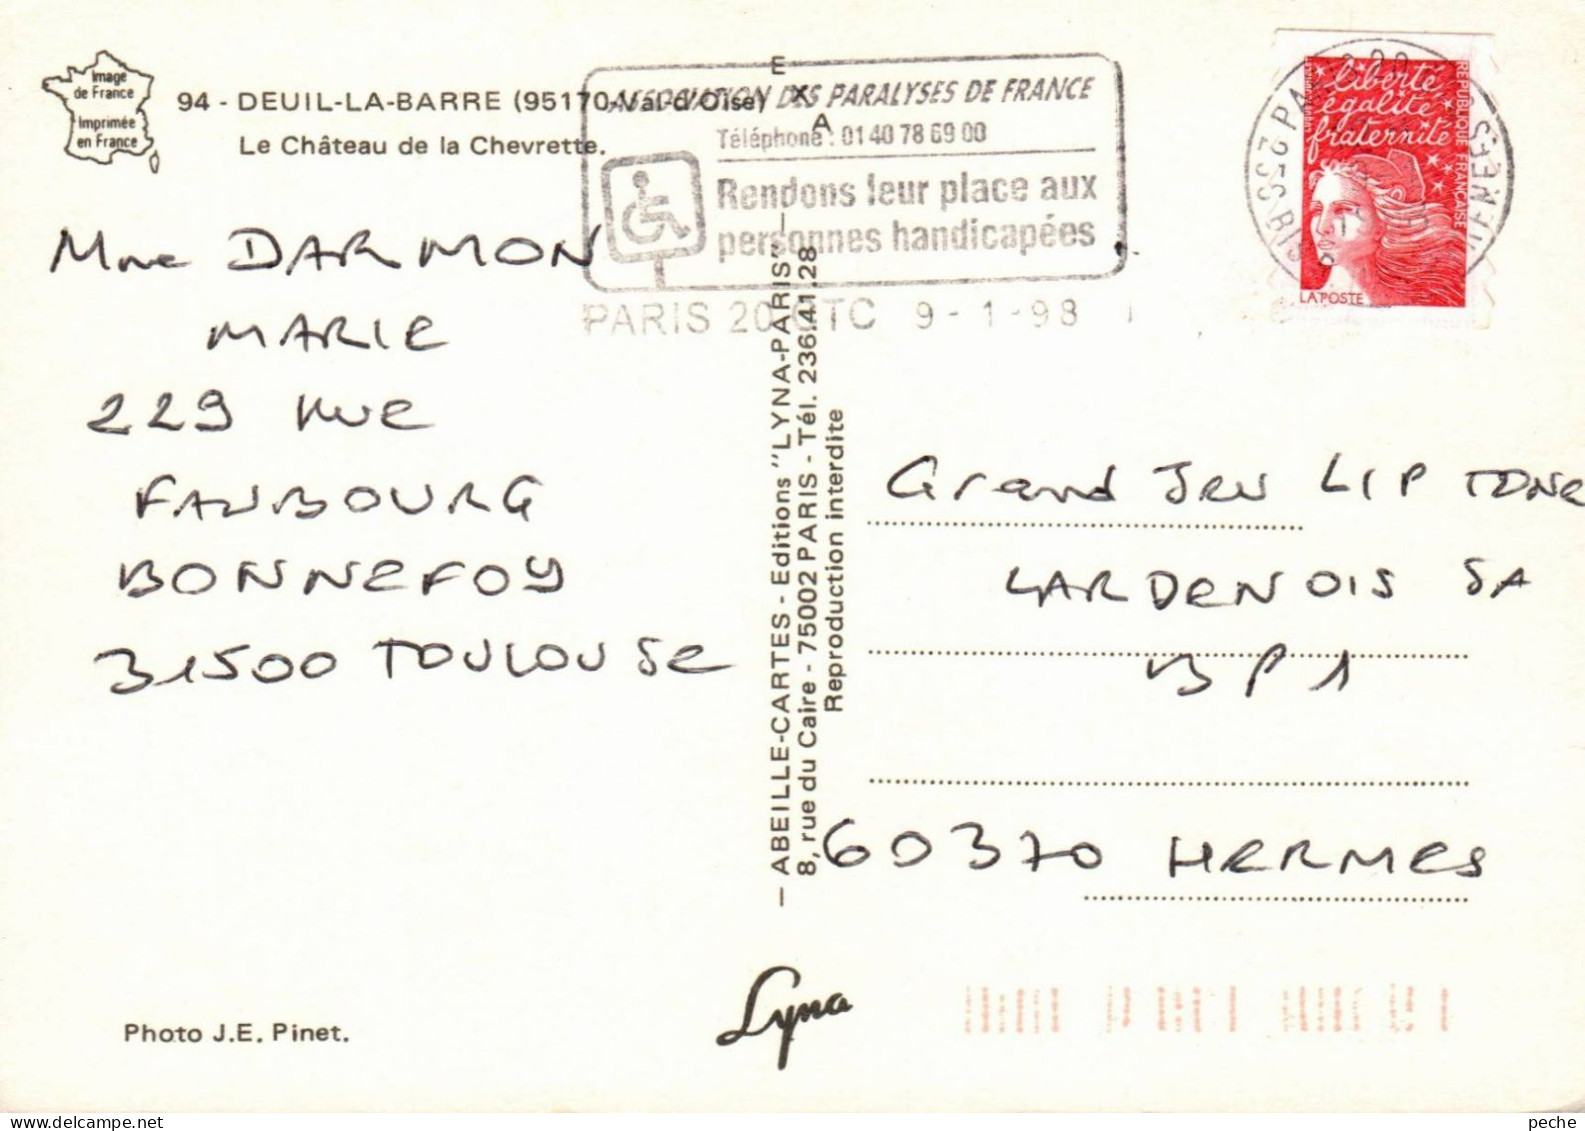 Image
de France
Imprimée
en France
94 - DEUIL-LA-BARRE (95170 Val-d'Oise)
Le Château de la Chevrette.
E
X
A
ASSOCIATION DES PARALYSES DE FRANCE
Téléphone : 01 40 78 69 00
Rendons leur place aux
personnes handicapées
PARIS 20 CTC 9-1-98
liberté
égalité
fraternité
REPUBLIQUE FRANÇAISE
LA POSTE
Mme DARMON
MARIE
229 Rue
FAUBOURG
BONNEFOY
31500 TOULOUSE
— ABEILLE-CARTES - Editions "LYNA-PARIS"
8, rue du Caire - 75002 PARIS - Tél. 236.41.28
Reproduction interdite
Grand Jeu LIPTONE
LARDENOIS SA
BP1
60370 HERMES
Lyna
Photo J.E. Pinet.
peche